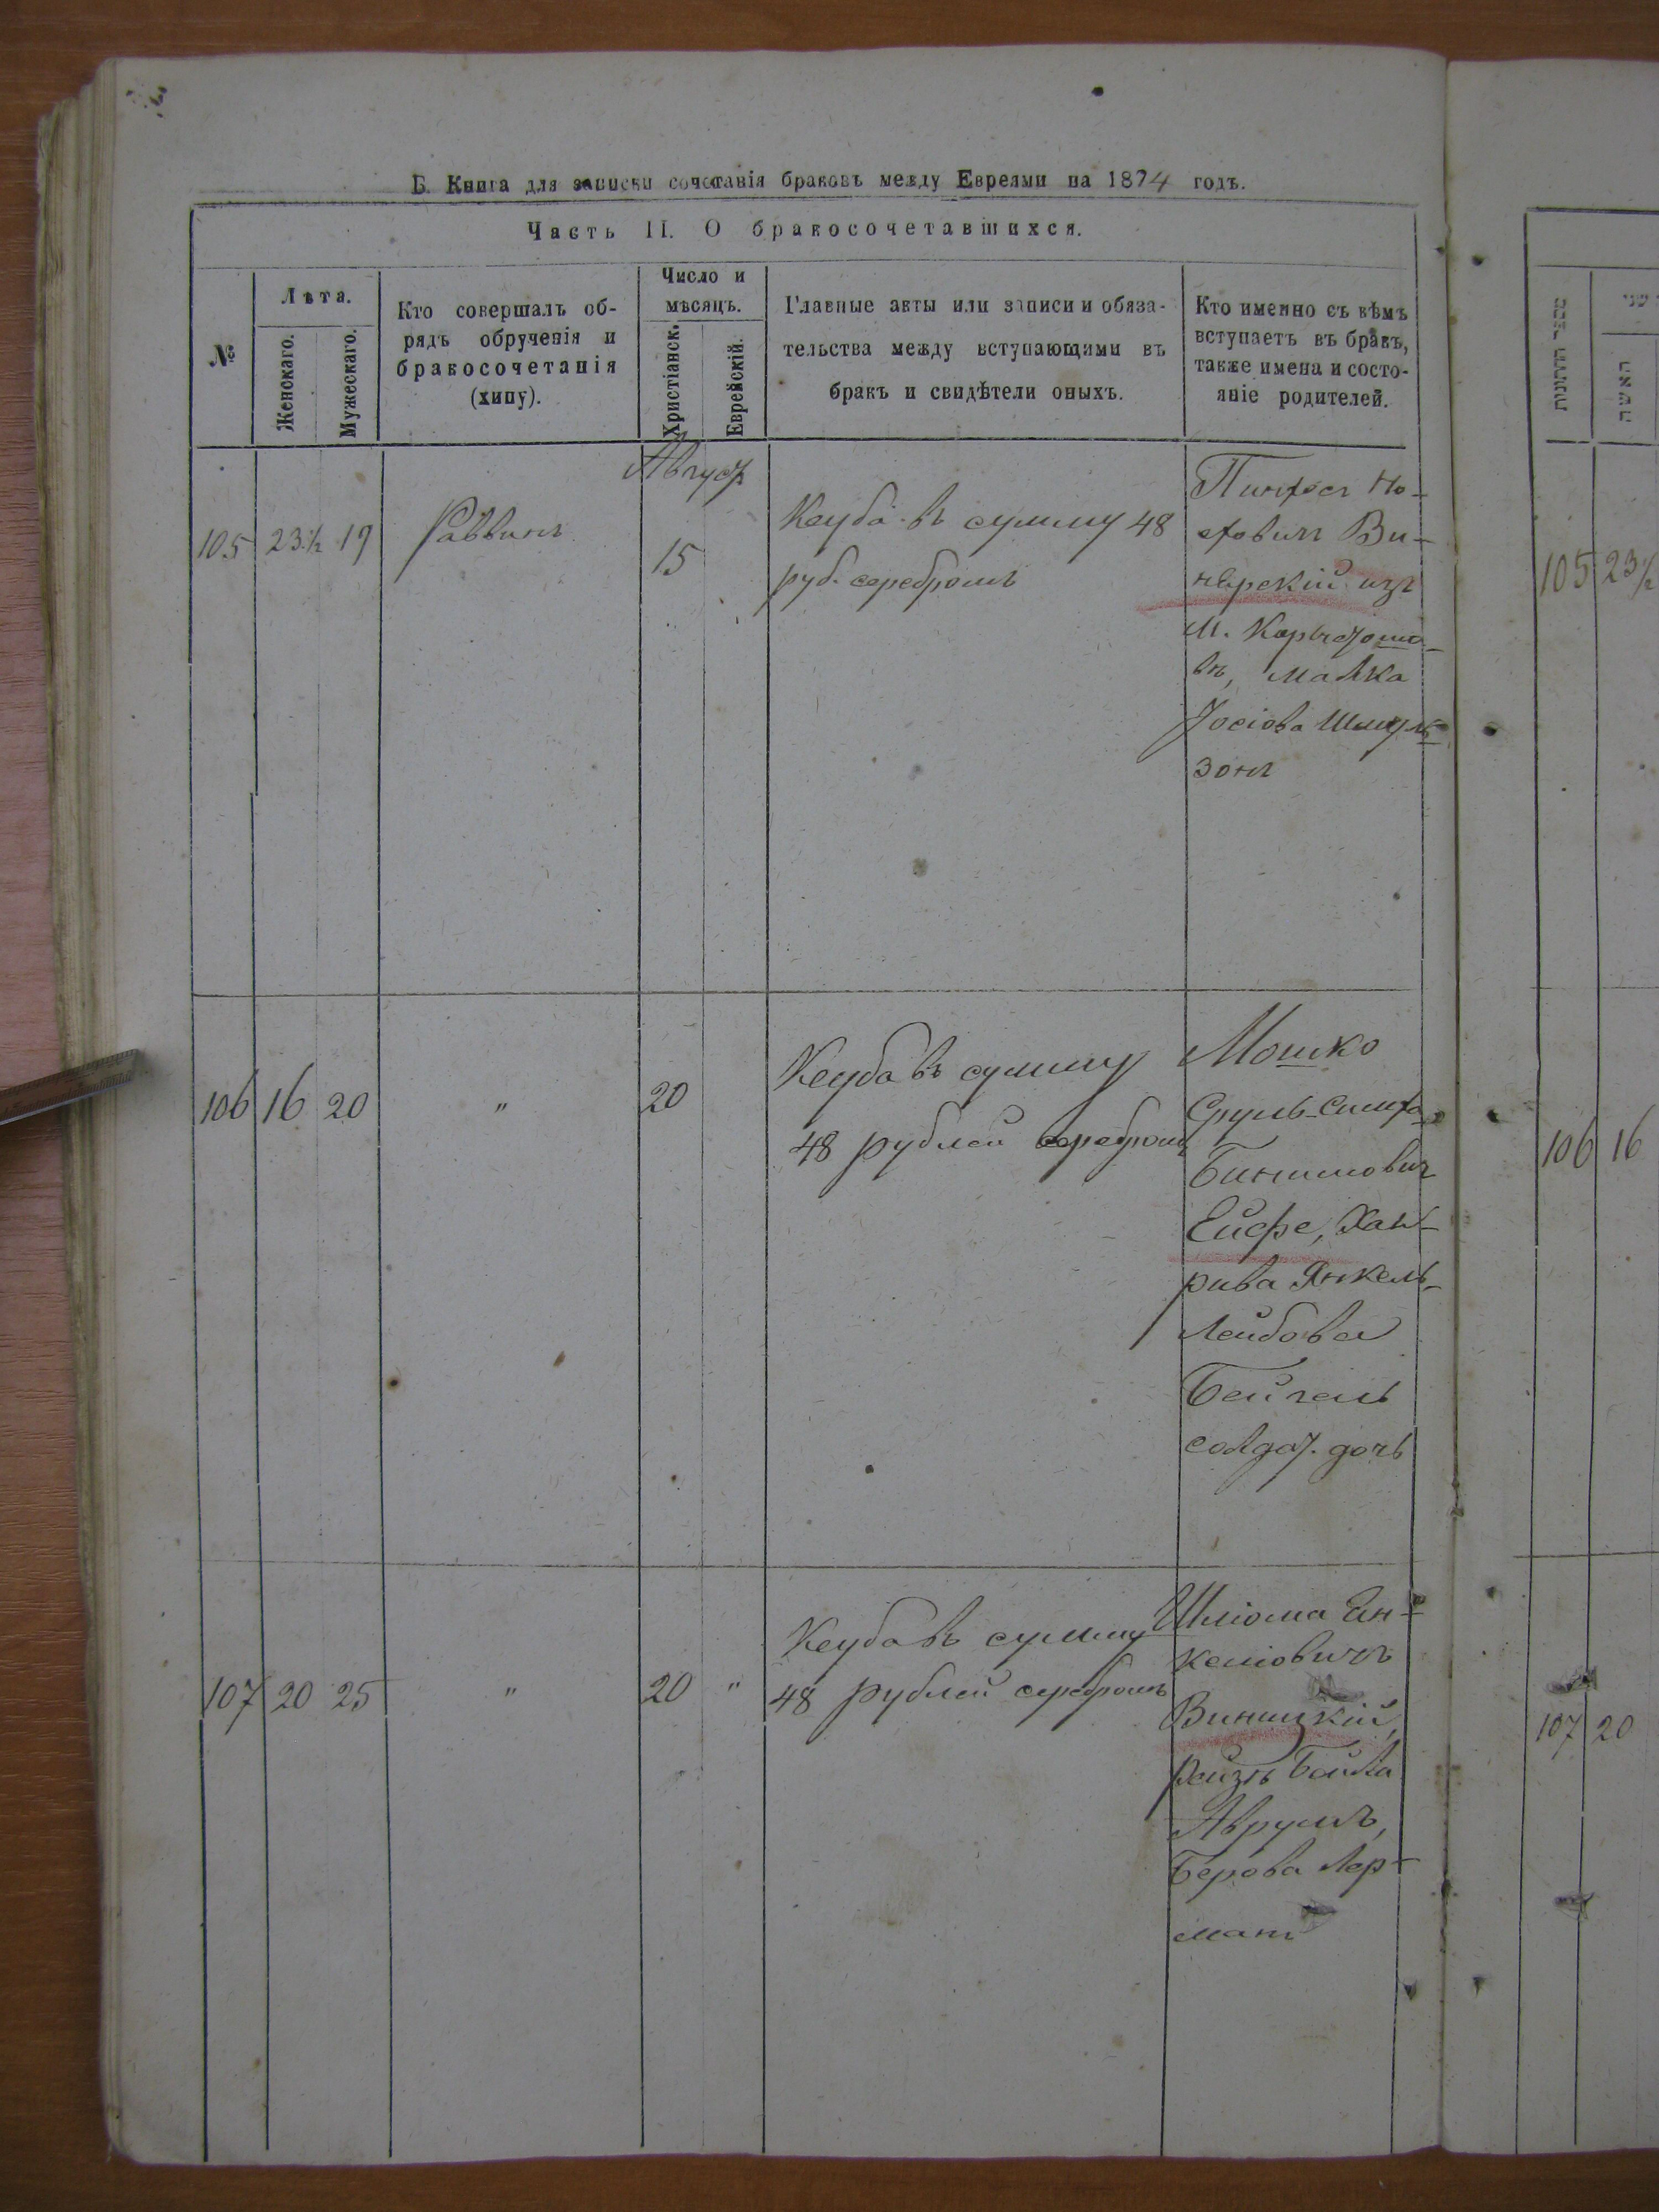 Б. Книга для записки сочетанія браковъ между Евреями на 1874 годъ.
Часть II. О бракосочетавшихся.
№
Лѣта.
Женскаго.
Мужескаго.
Кто совершалъ об-
рядъ обрученія и
бракосочетанія
(хипу).
Число и
мѣсяцъ.
Христіанск.
Еврейскій.
Главные акты или записи и обяза-
тельства между вступающими въ
бракъ и свидѣтели оныхъ.
Кто именно съ кѣмъ
вступаетъ въ бракъ,
также имена и состо-
яніе родителей.
Август
105 23½ 19 Раввинъ 15
Кцуба въ сумму 48
руб. серебромъ
Пинхос Но-
ховичъ Ви-
нярскій изъ
м.
въ, Малка
Іосіова Шмуль-
зонъ
106 16 20 " 20
Кцуба въ сумму
48 рублей серебромъ
Мошко
Сруль-Симха
Бинимович
Ейсфе, Хая-
рива Янкель-
Лейбова
Бейгель
солдат. дочь
107 20 25 " 20 "
Кцуба въ сумму
48 рублей серебромъ
Шліома Ян-
келіовичъ
Виницкій,
Рейзя Бейла
Аврумъ,
Берова Лер-
манъ
105 23½
106 16
107 20
האשה